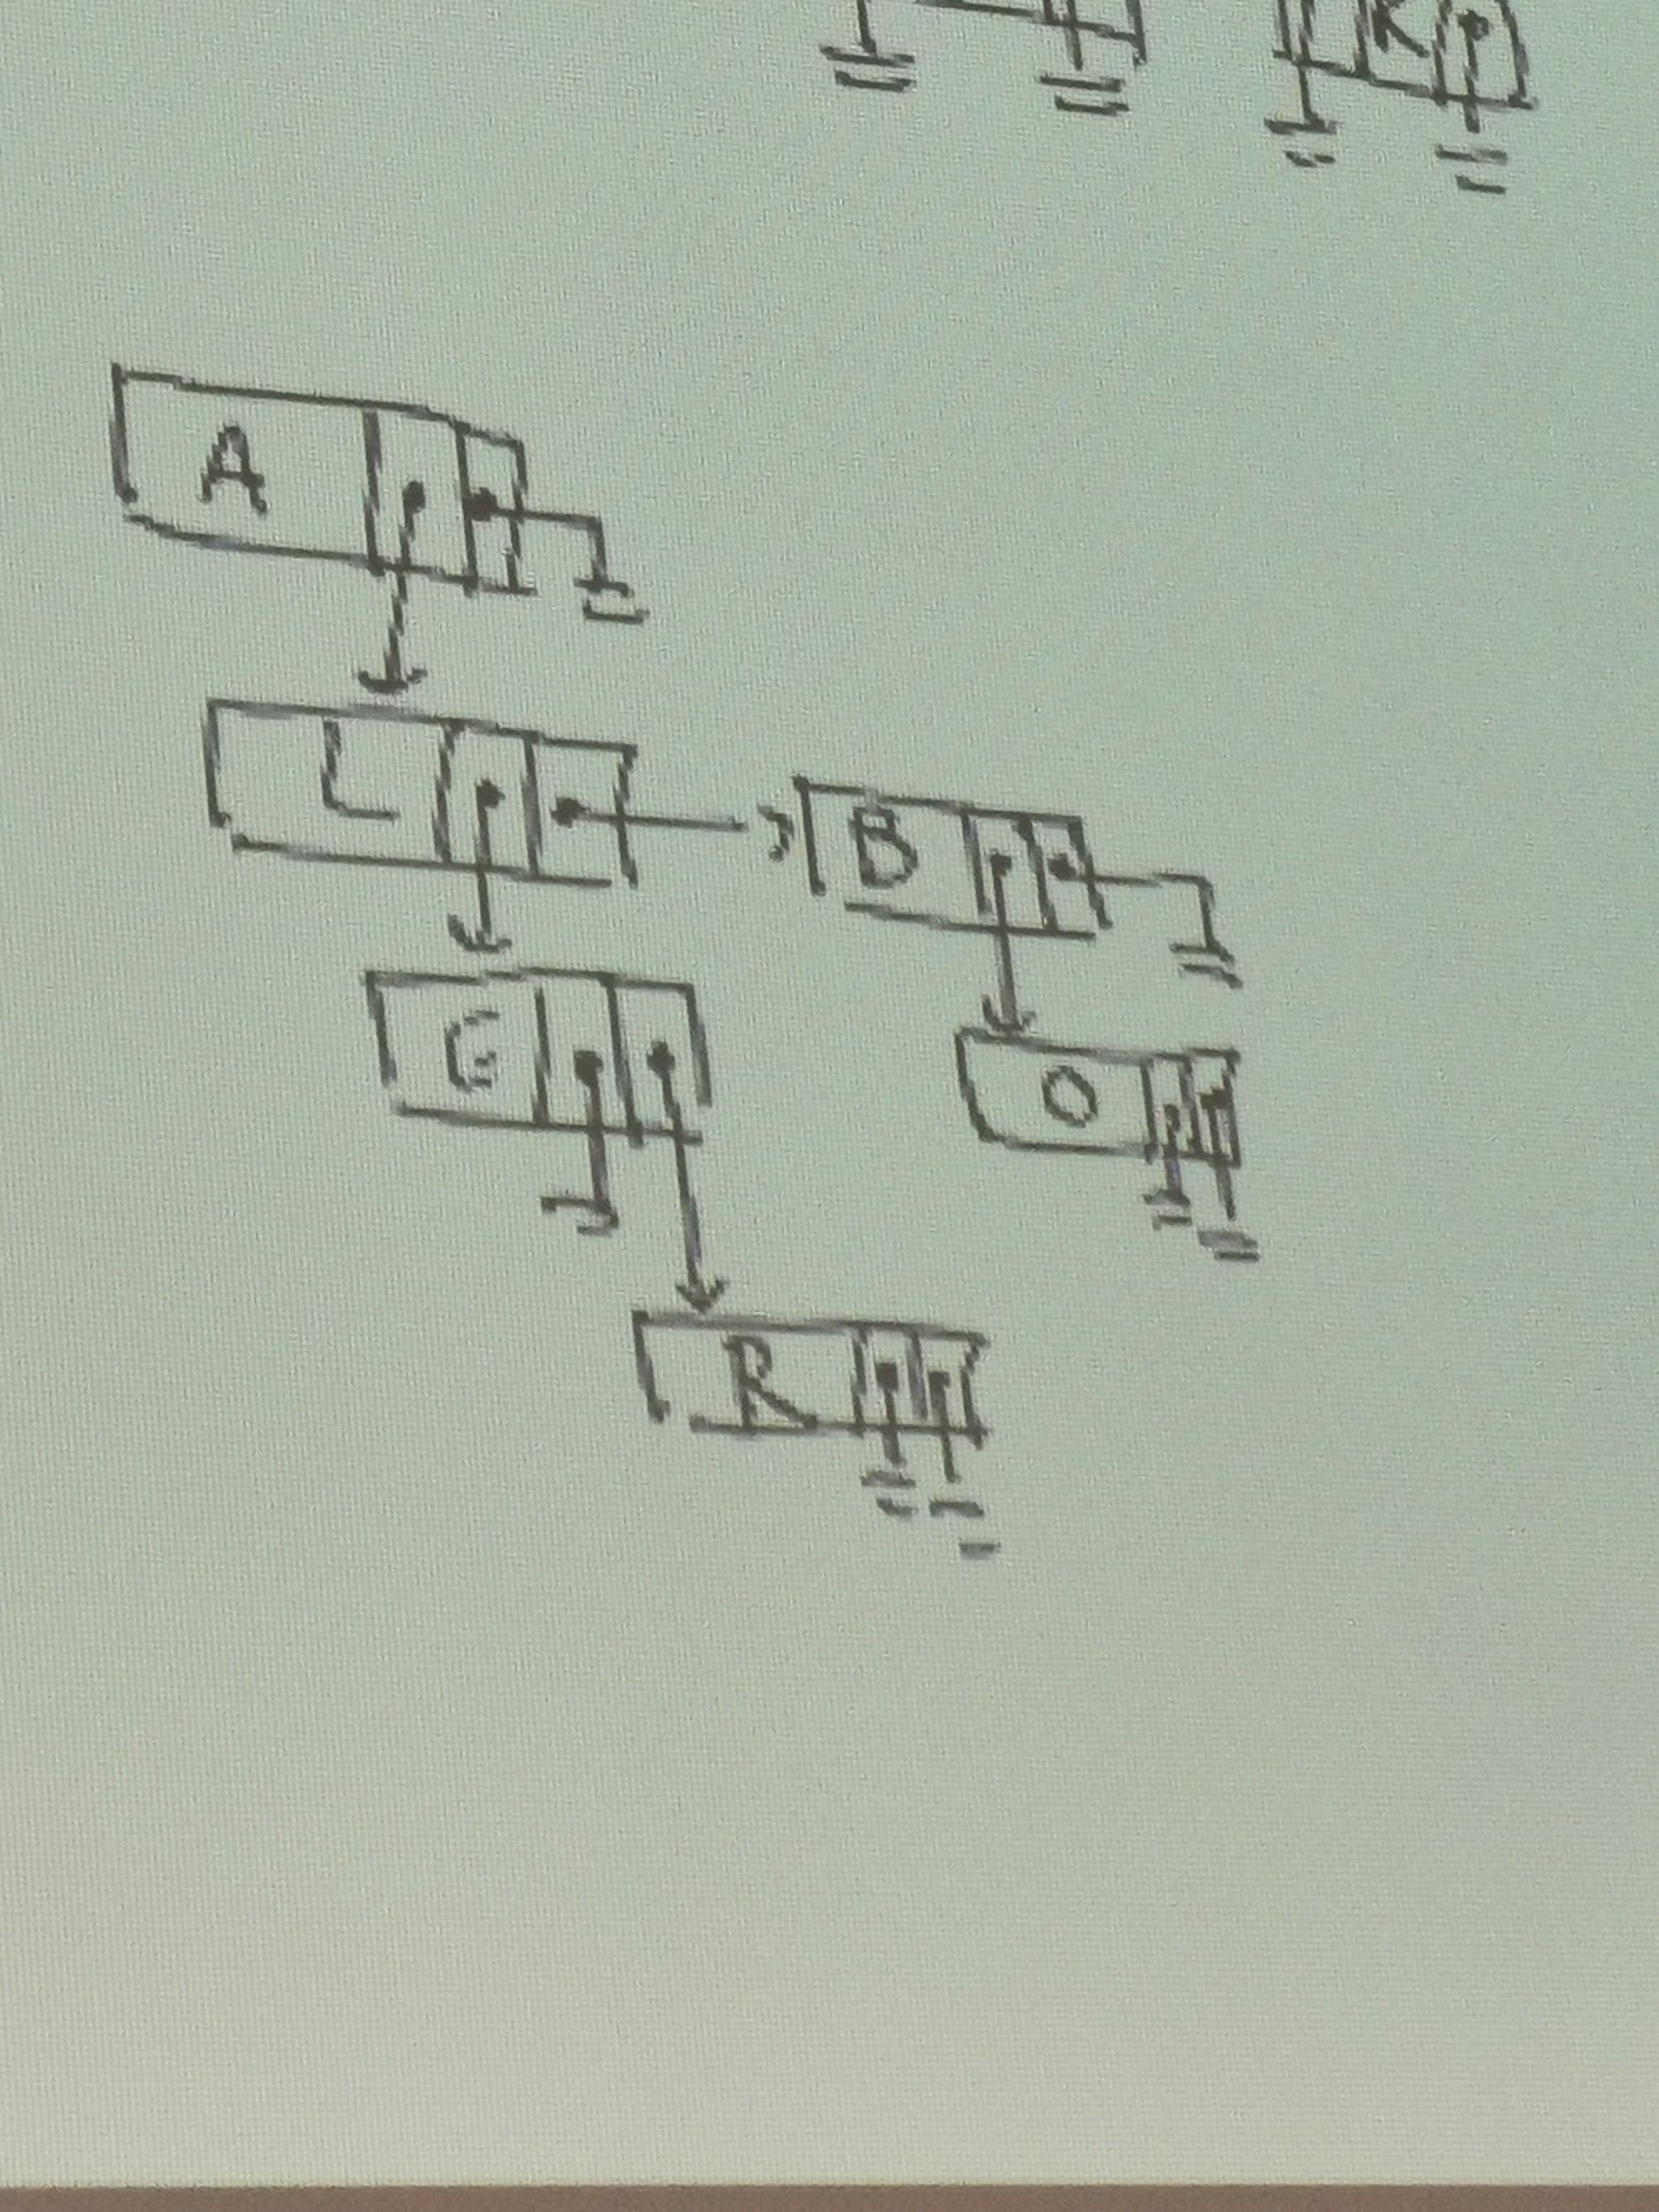 R
A
L
B
G
O
R